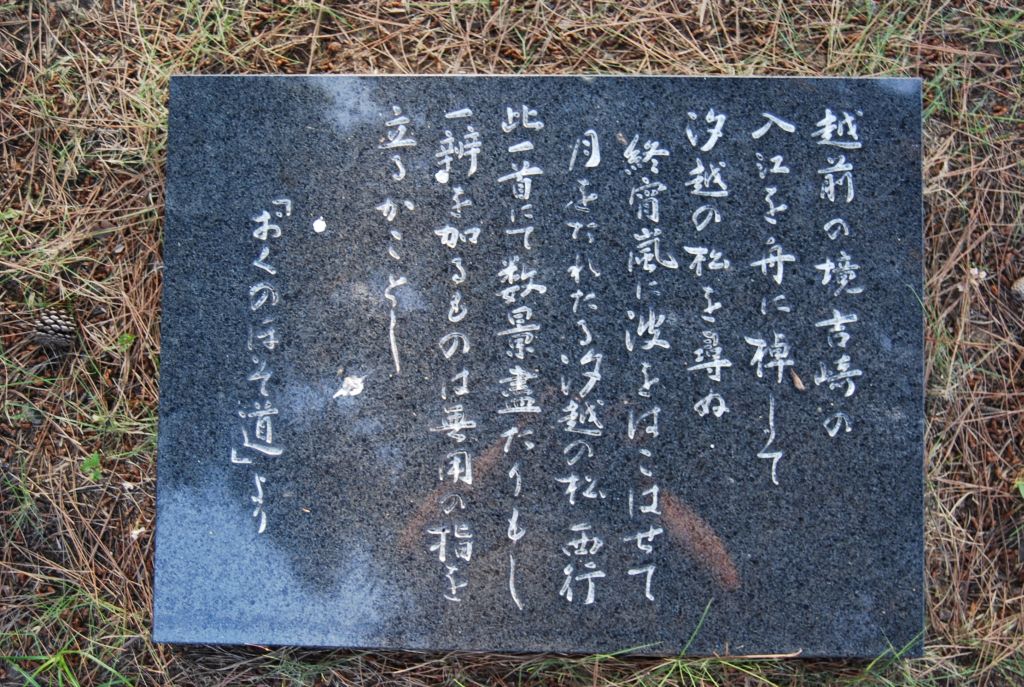 越前の境吉崎の
入江を舟に棹して
汐越の松を尋ぬ
終宵嵐に波をはこはせて
月をたれたる汐越の松 西行
此一首にて数景盡たりもし
一辨を加るものは無用の指を
立るかことし
『おくのほそ道』より